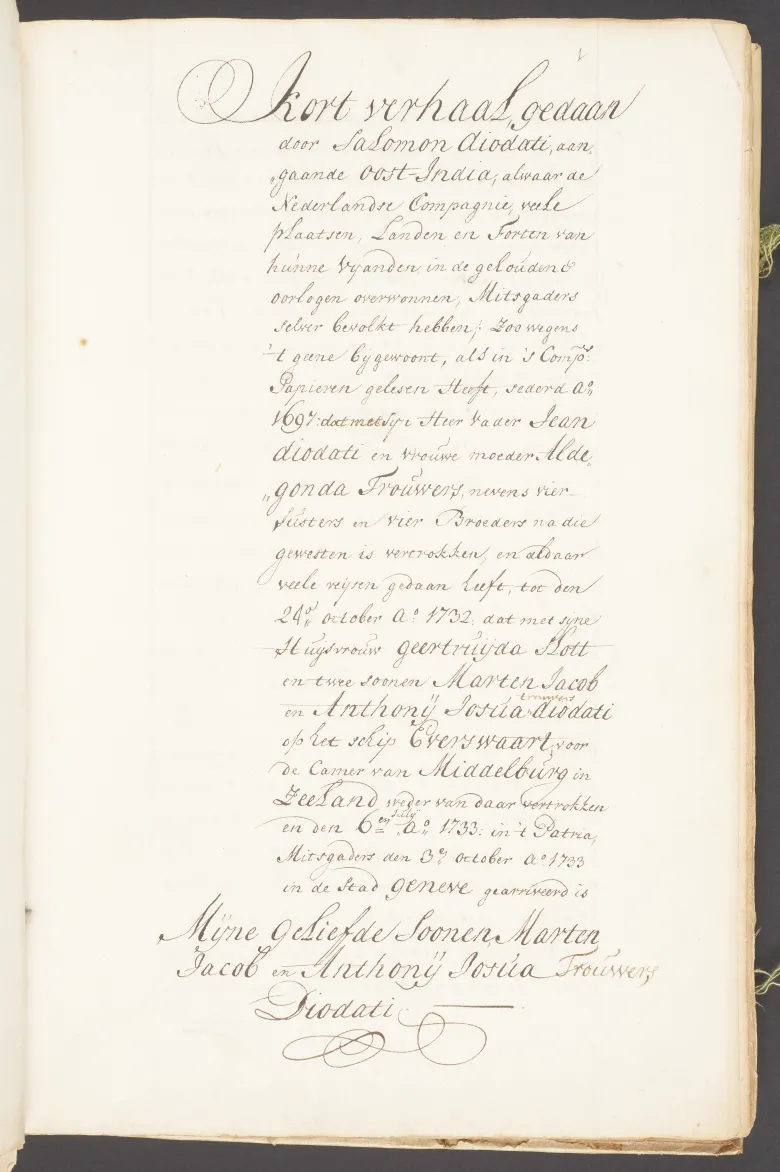 1
Kort verhaal, gedaan
door Salomon diodati, aan„
„gaande Oost-India, alwaar de
Nederlandse Compagnie, veele
plaatsen, Landen en Forten van
hunne vyanden, in de gehoudene
oorlogen overwonnen, Mitsgaders
selver bevolkt hebben; Zoo wegens
't geene bygewoont, als in 's Comps:
Papieren gelesen Heeft, sederd ao:
1697: dat met syn Heer Vader Jean
diodati en vrouwe moeder Alde„
„gonda Trouwers, nevens vier
susters en vier Broeders na die
gewesten is vertrokken, en aldaar
veele reysen gedaan heeft, tot den
24e october Ao 1732: dat met syne
Huysvrouw geertruijda Slott
en twee soonen Marten Jacob
en Anthonÿ Josua trouwers diodati
op het schip Everswaart, voor
de Camer van Middelburg in
Zeeland, weder van daar vertrokken
en den 6en July Ao 1733: in 't Patria,
Mitsgaders den 3e october Ao 1733
in de Stad geneve gearriveerd is
Mÿne Geliefde Soonen, Marten
Jacob en Anthonÿ Josua Trouwers
Diodati